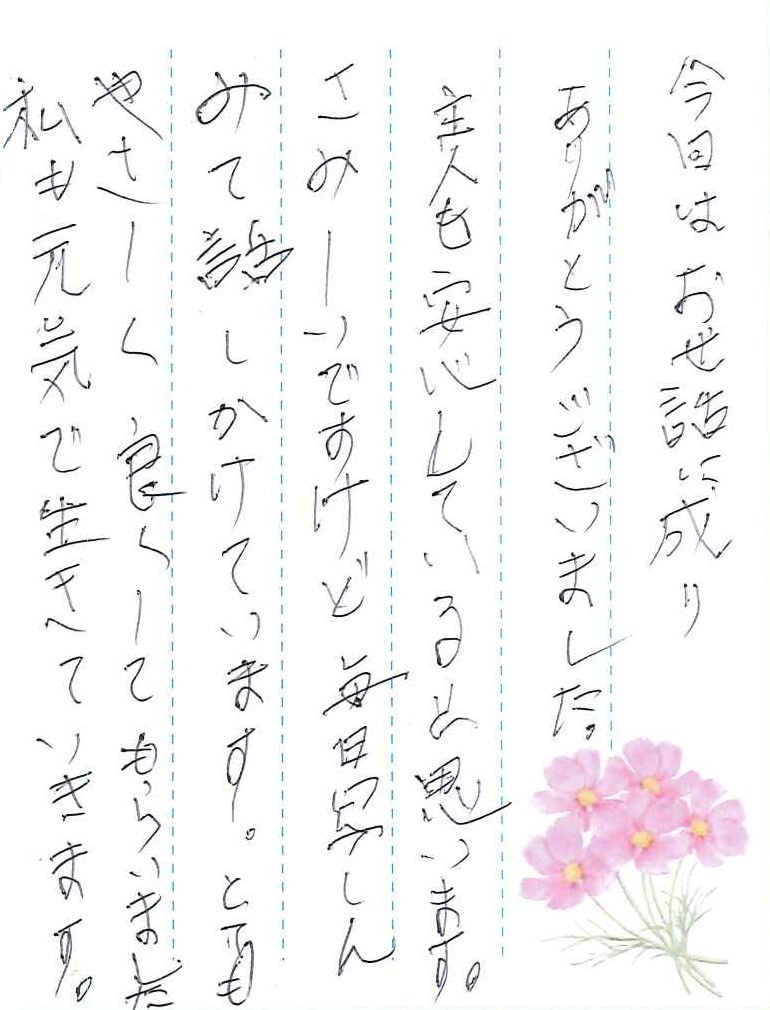 今回はおせ話に成り
ありがとうございました。
主人も安心していると思います。
さみしいですけど毎日写しん
みて話しかけています。とても
やさしく良くしてもらいました
私も元気で生きていきます。